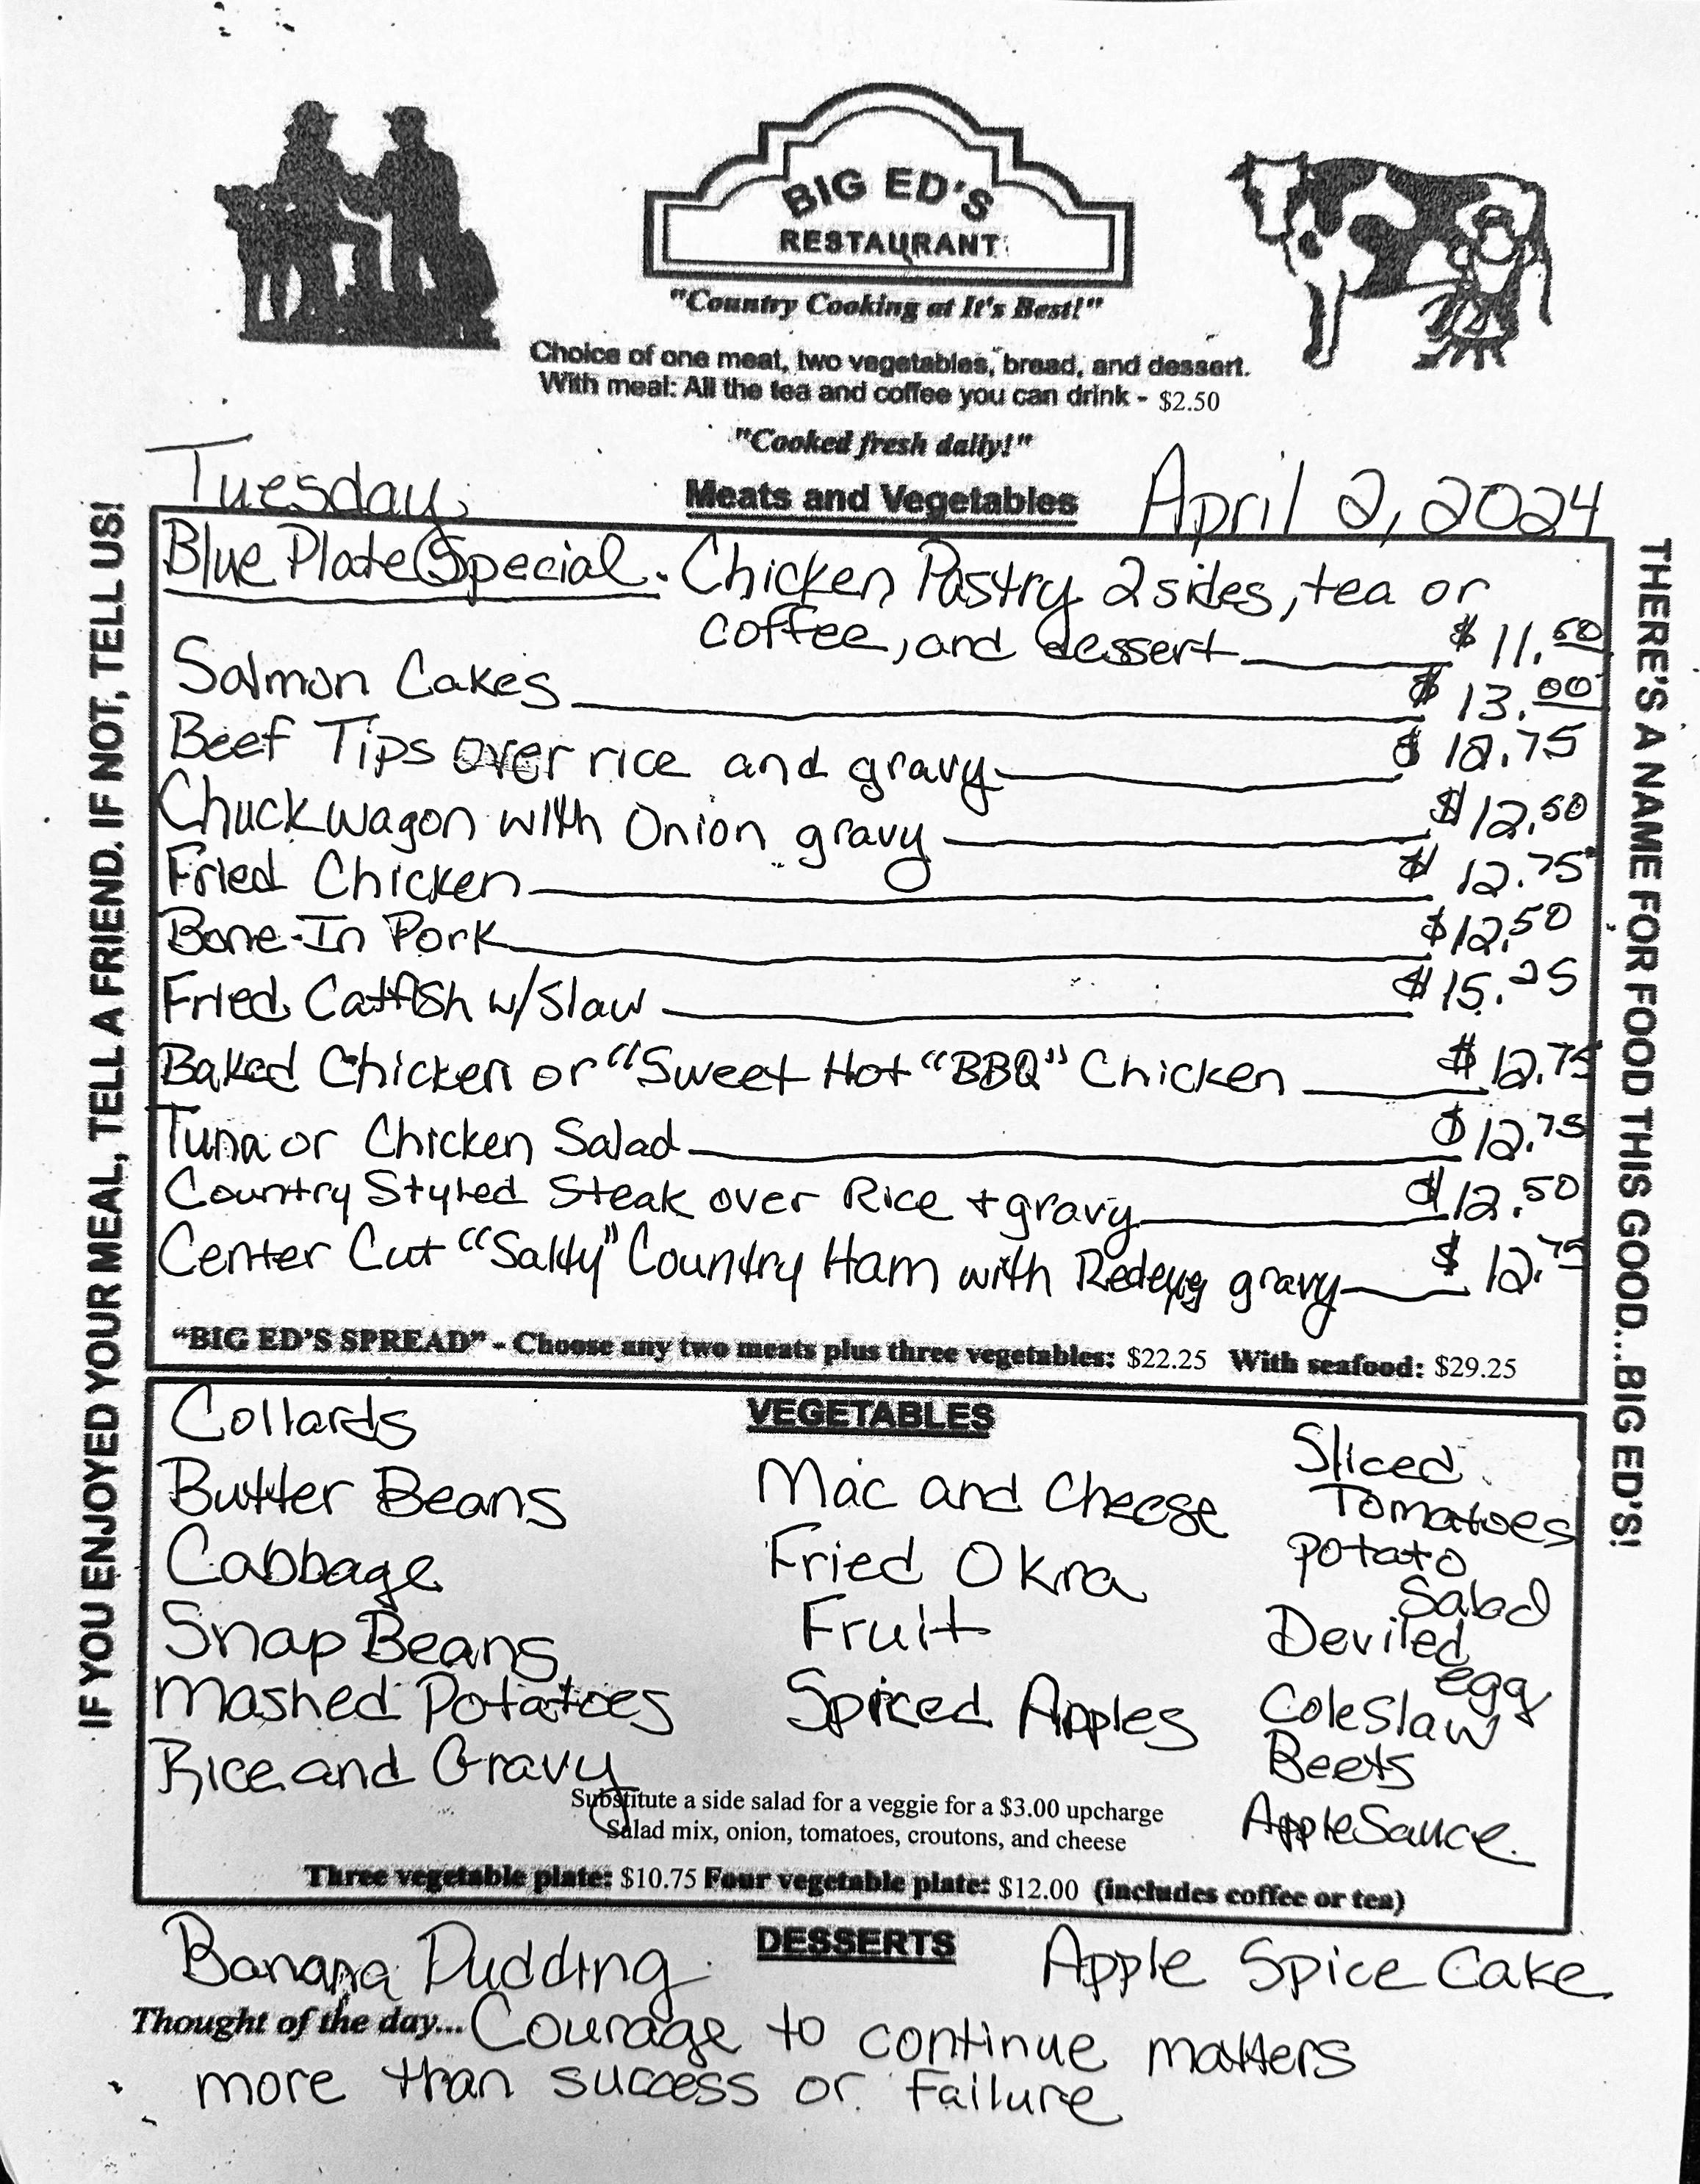 BIG ED'S
RESTAURANT
"Country Cooking at It's Best!"
Choice of one meat, two vegetables, bread, and dessert.
With meal: All the tea and coffee you can drink - $2.50
"Cooked fresh daily!"
Tuesday
Meats and Vegetables
April 2, 2024
IF YOU ENJOYED YOUR MEAL, TELL A FRIEND. IF NOT, TELL US!
THERE'S A NAME FOR FOOD THIS GOOD...BIG ED'S!
Blue Plate Special. Chicken Pastry 2 sides, tea or
coffee, and dessert $11.50
Salmon Cakes $13.00
Beef Tips over rice and gravy $12.75
Chuckwagon with Onion gravy $12.50
Fried Chicken $12.75
Bone-In Pork $12.50
Fried Catfish w/Slaw $15.25
Baked Chicken or "Sweet Hot "BBQ" Chicken $12.75
Tuna or Chicken Salad $12.75
Country Styled Steak over Rice + gravy $12.50
Center Cut "Salty" Country Ham with Redeye gravy $12.75
"BIG ED'S SPREAD" - Choose any two meats plus three vegetables: $22.25 With seafood: $29.25
VEGETABLES
Collards
Butter Beans
Cabbage
Snap Beans
Mashed Potatoes
Rice and Gravy
Mac and Cheese
Fried Okra
Fruit
Spiced Apples
Sliced
Tomatoes
Potato
Salad
Deviled
egg
Coleslaw
Beets
AppleSauce
Substitute a side salad for a veggie for a $3.00 upcharge
Salad mix, onion, tomatoes, croutons, and cheese
Three vegetable plate: $10.75 Four vegetable plate: $12.00 (includes coffee or tea)
DESSERTS
Banana Pudding
Apple Spice Cake
Thought of the day... Courage to continue matters
more than success or Failure